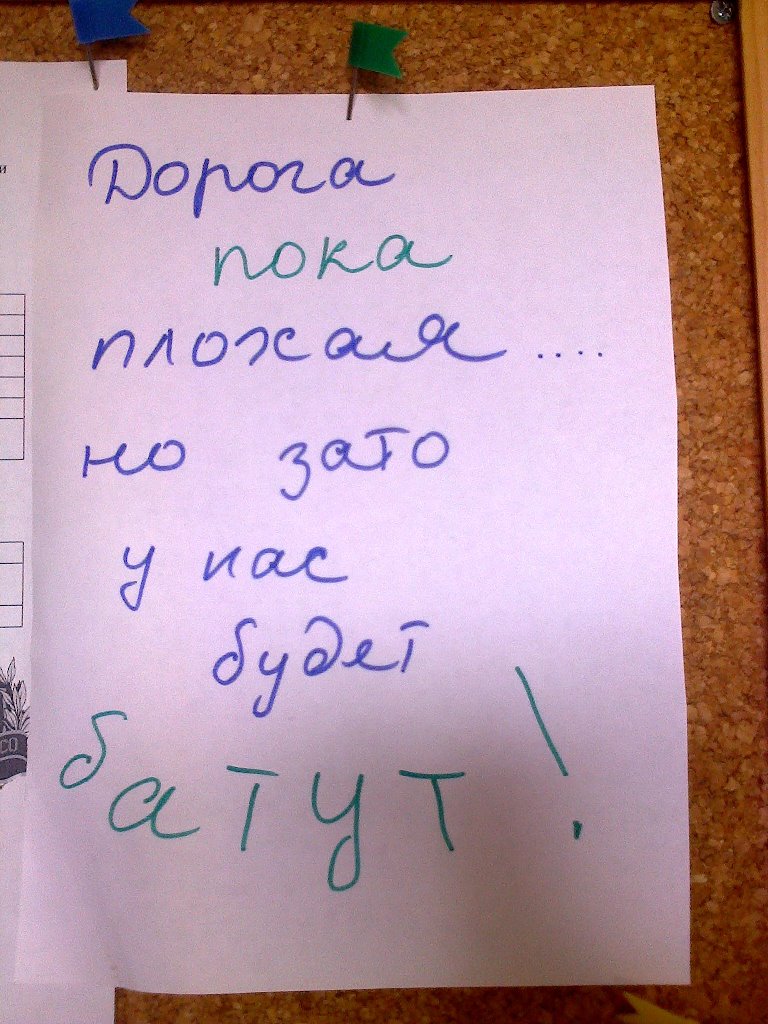 Дорога
пока
плохая....
но зато
у нас
будет
батут!